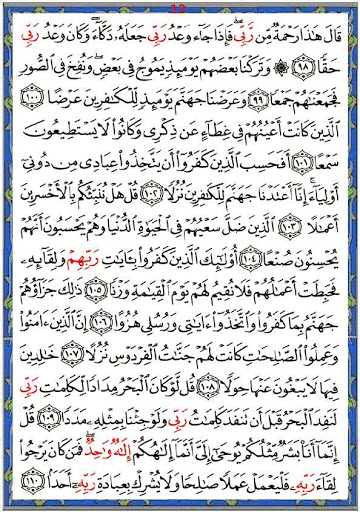 12
قَالَ هَٰذَا رَحْمَةٌ مِّن رَّبِّي ۖ فَإِذَا جَاءَ وَعْدُ رَبِّي جَعَلَهُ دَكَّاءَ ۖ وَكَانَ وَعْدُ رَبِّي
حَقًّا ٩٨ ۞ وَتَرَكْنَا بَعْضَهُمْ يَوْمَئِذٍ يَمُوجُ فِي بَعْضٍ ۖ وَنُفِخَ فِي الصُّورِ
فَجَمَعْنَاهُمْ جَمْعًا ٩٩ وَعَرَضْنَا جَهَنَّمَ يَوْمَئِذٍ لِّلْكَافِرِينَ عَرْضًا ١٠٠
الَّذِينَ كَانَتْ أَعْيُنُهُمْ فِي غِطَاءٍ عَن ذِكْرِي وَكَانُوا لَا يَسْتَطِيعُونَ
سَمْعًا ١٠١ أَفَحَسِبَ الَّذِينَ كَفَرُوا أَن يَتَّخِذُوا عِبَادِي مِن دُونِي
أَوْلِيَاءَ ۚ إِنَّا أَعْتَدْنَا جَهَنَّمَ لِلْكَافِرِينَ نُزُلًا ١٠٢ قُلْ هَلْ نُنَبِّئُكُم بِالْأَخْسَرِينَ
أَعْمَالًا ١٠٣ الَّذِينَ ضَلَّ سَعْيُهُمْ فِي الْحَيَاةِ الدُّنْيَا وَهُمْ يَحْسَبُونَ أَنَّهُمْ
يُحْسِنُونَ صُنْعًا ١٠٤ أُولَٰئِكَ الَّذِينَ كَفَرُوا بِآيَاتِ رَبِّهِمْ وَلِقَائِهِ
فَحَبِطَتْ أَعْمَالُهُمْ فَلَا نُقِيمُ لَهُمْ يَوْمَ الْقِيَامَةِ وَزْنًا ١٠٥ ذَٰلِكَ جَزَاؤُهُمْ
جَهَنَّمُ بِمَا كَفَرُوا وَاتَّخَذُوا آيَاتِي وَرُسُلِي هُزُوًا ١٠٦ إِنَّ الَّذِينَ آمَنُوا
وَعَمِلُوا الصَّالِحَاتِ كَانَتْ لَهُمْ جَنَّاتُ الْفِرْدَوْسِ نُزُلًا ١٠٧ خَالِدِينَ
فِيهَا لَا يَبْغُونَ عَنْهَا حِوَلًا ١٠٨ قُل لَّوْ كَانَ الْبَحْرُ مِدَادًا لِّكَلِمَاتِ رَبِّي
لَنَفِدَ الْبَحْرُ قَبْلَ أَن تَنفَدَ كَلِمَاتُ رَبِّي وَلَوْ جِئْنَا بِمِثْلِهِ مَدَدًا ١٠٩ قُلْ
إِنَّمَا أَنَا بَشَرٌ مِّثْلُكُمْ يُوحَىٰ إِلَيَّ أَنَّمَا إِلَٰهُكُمْ إِلَٰهٌ وَاحِدٌ ۖ فَمَن كَانَ يَرْجُوا
لِقَاءَ رَبِّهِ فَلْيَعْمَلْ عَمَلًا صَالِحًا وَلَا يُشْرِكْ بِعِبَادَةِ رَبِّهِ أَحَدًا ١١٠